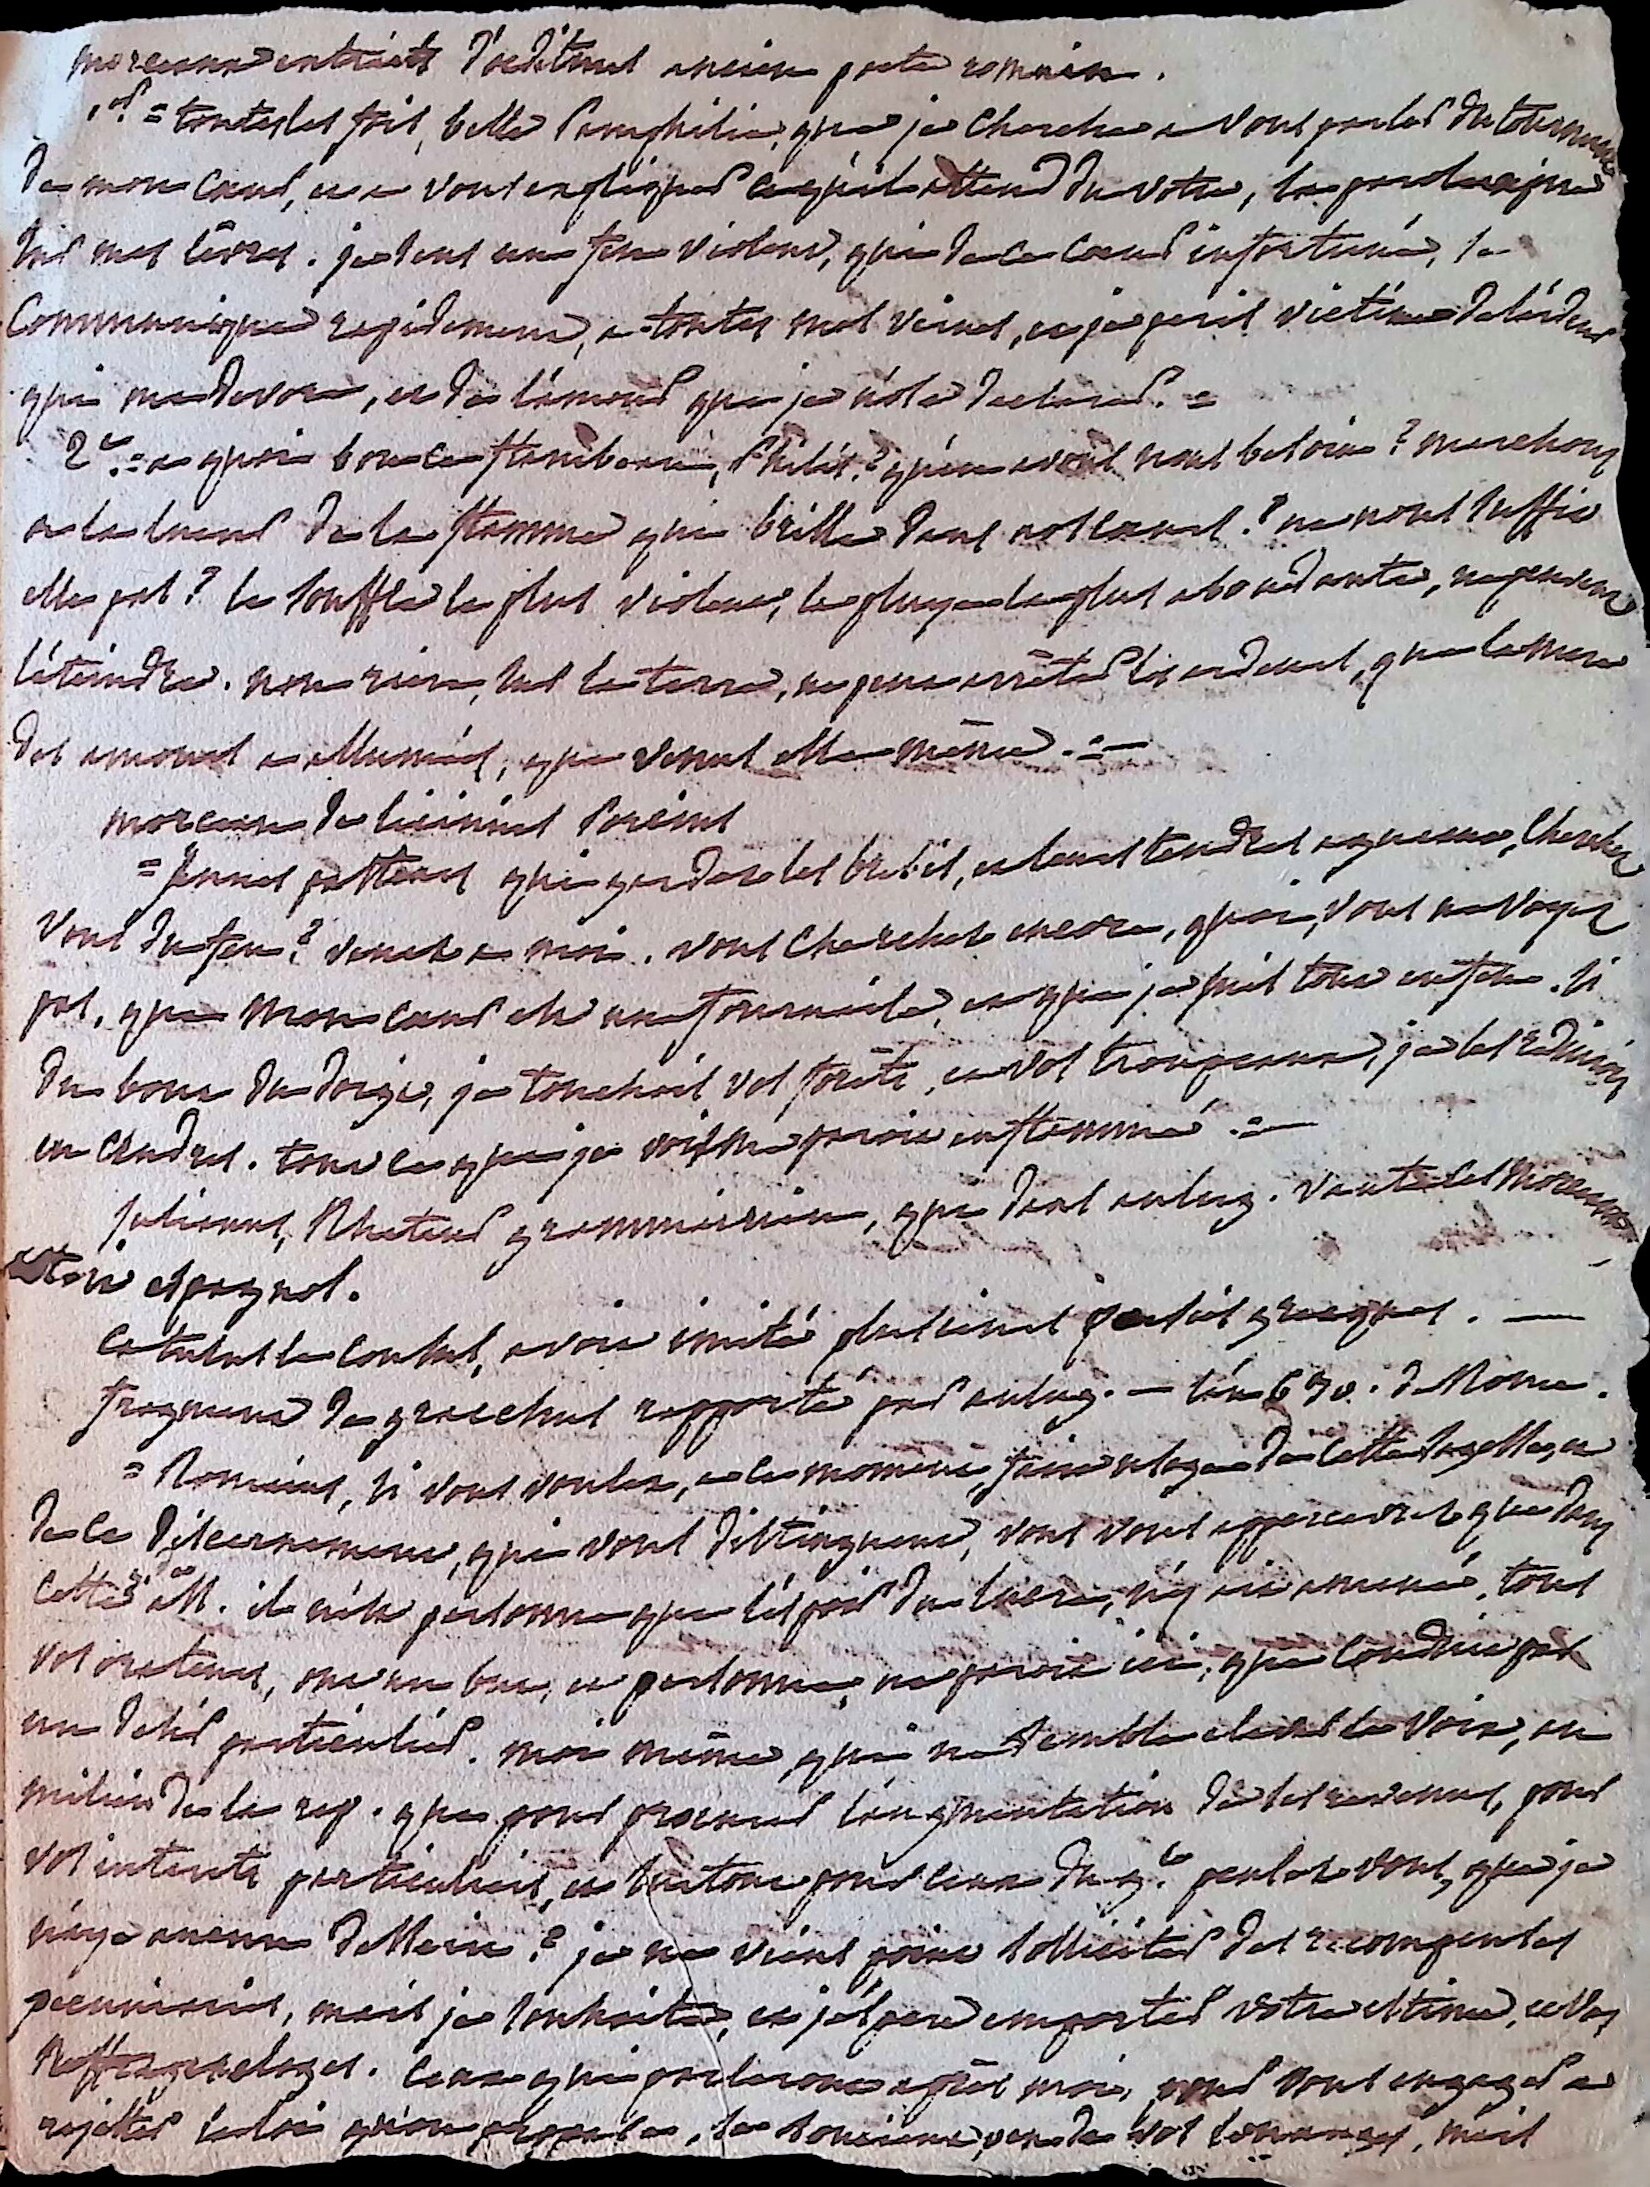 morceaux extraits d'oedituus ancien poete romain.
1er. = toutes les fois, belle Pamphilia, que je cherche a vous parler du tourment
de mon coeur, et a vous expliquer ce qu'il attend du votre, la parole expire
sur mes lèvres. je sens un feu violent, qui de ce coeur infortuné, se
communique rapidement, a toutes mes veines, et je peris victime de l'ardeur
qui me devore, et de l'amour que je n'ose declarer. =
2e. = a quoi bon ce flambeau, Philis? qu'en avons nous besoin? marchons
a la lueur de la flamme qui brille dans nos coeurs? ne nous suffit
elle pas? le souffle le plus violent, la pluye la plus abondante, ne peuvent
l'éteindre. non rien, sur la terre, ne peut arrêter les ardeurs, que la mere
des amours a allumées, que venus elle même. =
morceau de licinius Porcius
= jeunes pasteurs qui gardez les brebis, et leurs tendres agneaux, cherchez
vous du feu? venez a moi. vous cherchez encore, quoi, vous ne voyez
pas, que mon coeur est une fournaise, et que je suis tout en feu. si
du bout du doigt, je touchois vos forêts, et vos troupeaux, je les reduirois
en cendres. tout ce que je vois me paroit enflammé. =
julianus, Rheteur grammairien, que dans aulug. vante ces morceaux
etoit espagnol.
catulus le consul, avoit imité plusieurs poesies grecques. —
fragment de gracchus rapporté par aulug. — l'an 630. de Rome.
= Romains, si vous voulez, en ce moment, faire usage de cette sagesse, et
de ce discernement, qui vous distinguent, vous vous appercevrez que dans
cette ass. il n'est personne que l'espoir du lucre, n'y ait amené. tous
vos orateurs, ont un but, et personne, ne paroit ici, que conduit par
un desir particulier. moi même qui ne semble elever la voix, au
milieu de la rep. que pour procurer l'augmentation de ses revenus, pour
vos interets particuliers, et surtout pour ceux du g.al pensez vous, que je
n'aye aucun dessein? je ne viens point solliciter des recompenses
pecuniaires, mais je souhaite, et j'espere emporter votre estime, et vos
suffrages eloges. ceux qui parleront après moi, pour vous engager a
rejetter la loi qu'on propose, se soucient peu de vos louanges, mais